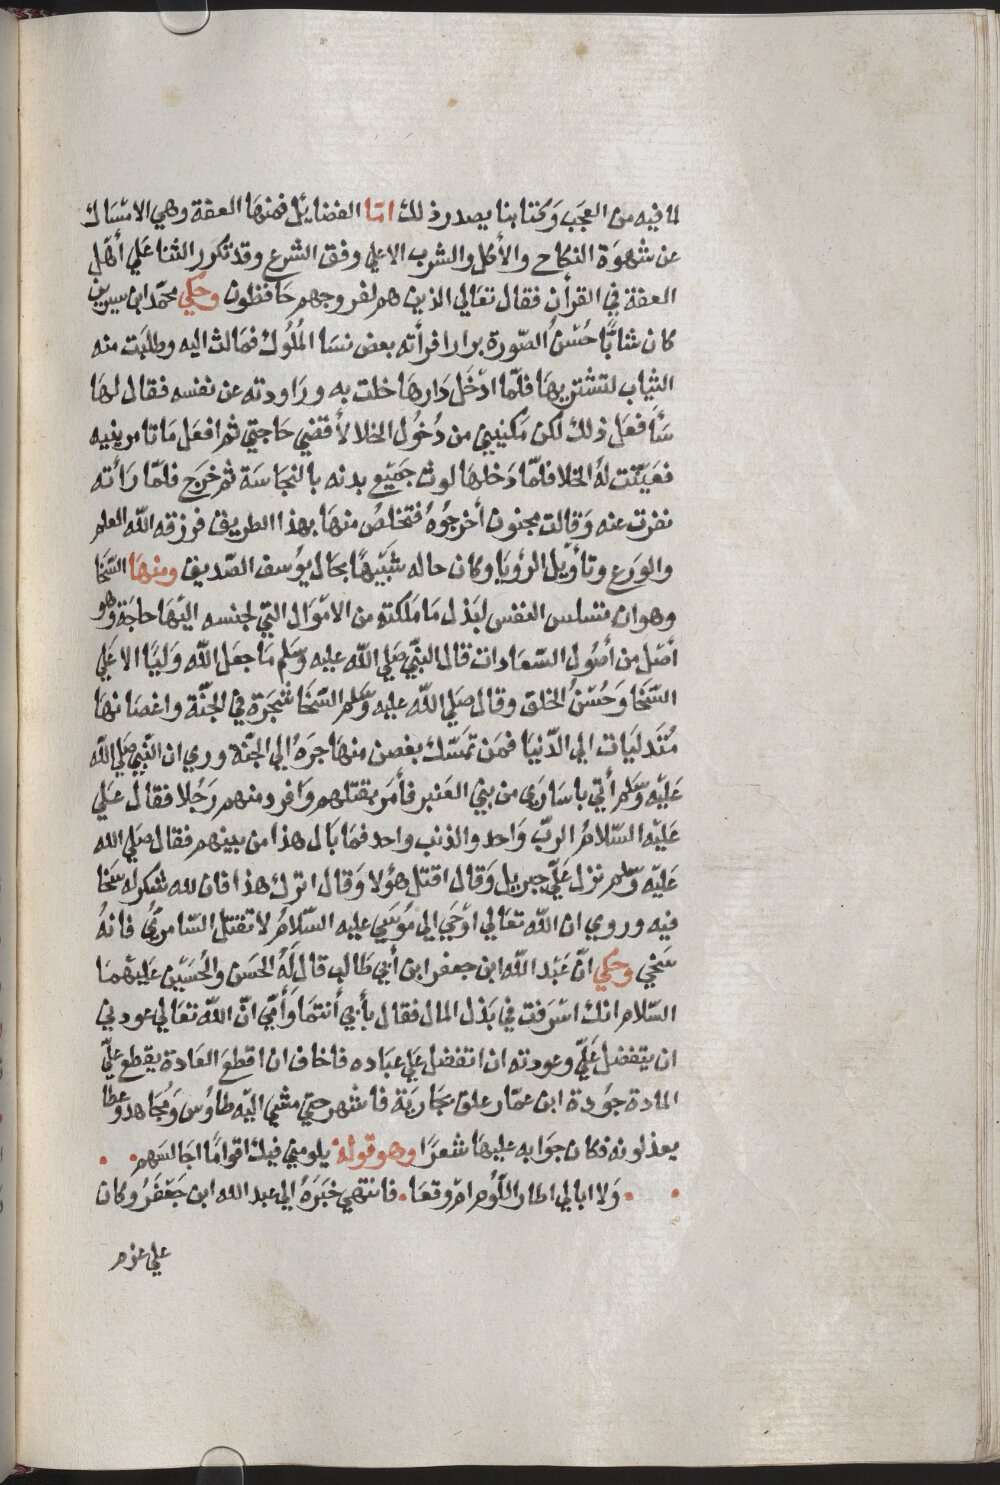 لما فيه من العجَب وَكتابنا بصدد ذلك امّا الفضايئل فمنهَا العفة وهي الامسَاك
عن شهوَة النكاح والأكل والشرب الاعلي وفق الشرع وقد تكرر الثنا عَلي أهَل
العفة في القرأن فقال تعَالي الذين هم لفروجهم حَافظون وحُكي محمّد ابن سيرين
كان شابًّا حُسْنُ الصّورة برارا فرأته بعض نسَا المُلُوك فمَالت اليه وطلبَت منه
الثياب لتشتريهَا فلّما ادْخَل دَارهَا خلت به ورَاودته عن نفسه فقال لهَا
سَأفعَل ذلك لكن مَكنيني من دُخُول الخلا لأقضي حَاجتي ثم افعَل مَا تامرينيه
فعَيّنت لهُ الخلا فلمّا دَخلهَا لوث جَميْع بدنه بالنجاسَة ثم خرَج فلمّا رَأته
نفرت عنه وَقالت مجنون أخرجُوهُ فتخلصُ منهَا بهذا الطريق فرزقه الله العلم
والوَرَع وتأويْل الرؤيَا وكان حاله شَبيْهًا بحَال يوُسف الصّديق ومنهَا السّخَا
وهو ان تتسلس النفس لبَذل مَا مَلكته من الامْوَال التي لجنسه اليْهَا حاجَة وَهو
أصْل من أصُول السّعَادات قال النبّي صَلي الله عليه وَسَلم مَا جعَل الله وَليًا الا عَلي
السّخَا وَحُسْنُ الخلق وقال صَلي الله عليه وسَلم السّخَا شجَرَة في الجنّة واغصَانهَا
مُتَدليَات الي الدّنيَا فمَن تمسّك بغصن منهَا جرَهُ الي الجنّة وري ان النّبي صَلي الله
عَليْه وَسَّلم أتي باسَارَي من بَني العَنبر فأمَر بقتلهم وَافرد منهم رَجُلا فقال عَلي
عَليْه السّلامُ الربّ وَاحد والذنب واحد فمَا بَال هذا من بينهم فقال صَلي الله
عَليْه وسّلم نزل عَليّ جبريل وَقال اقتل هؤلا وَقال اترك هذا فان لله شكر له سَخا
فيه وروي ان الله تعَالي اوْحَي الي مُوسَي عليه السّلامُ لا تقتل السّامريُ فانهُ
سَخي وحُكي انّ عَبْد الله ابن جعفر ابن أبي طَالب قال لَهُ الحَسَن والحُسَيْن عَليهْمَا
السّلام انك اسْرَفت في بَذل المال فقال بأبي أنتمَا وَأمّي انّ الله تعَالي عودني
ان يتفضل عَليّ وعودته ان اتفضل عَلي عبَاده فاخاف ان اقطع العَادة يقطع عليّ
المادة جوُدة ابن عمّار علق بجَاريَة فاشهر حتي مشي اليْه طاوُس وَمُجَاهد وعطا
يعذلونه فكان جوَابه عليهَا شعرًا وهو قوله يلومني فيك اقوامًا اجَالسَهم
وَلا ابالي اطار اللّوُم امْ وقعَا فانتهي خبَرَهُ الي عبد الله ابن جَعْفرُ وكان
علي عزم